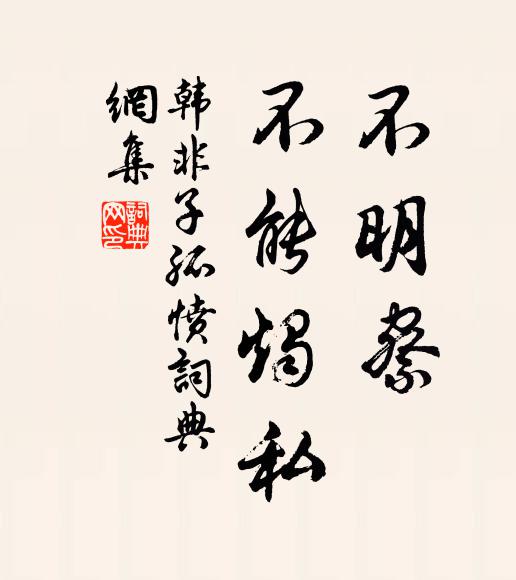 不明察
不能燭私
韩非子孤愤詞典
網集
詞典
网印